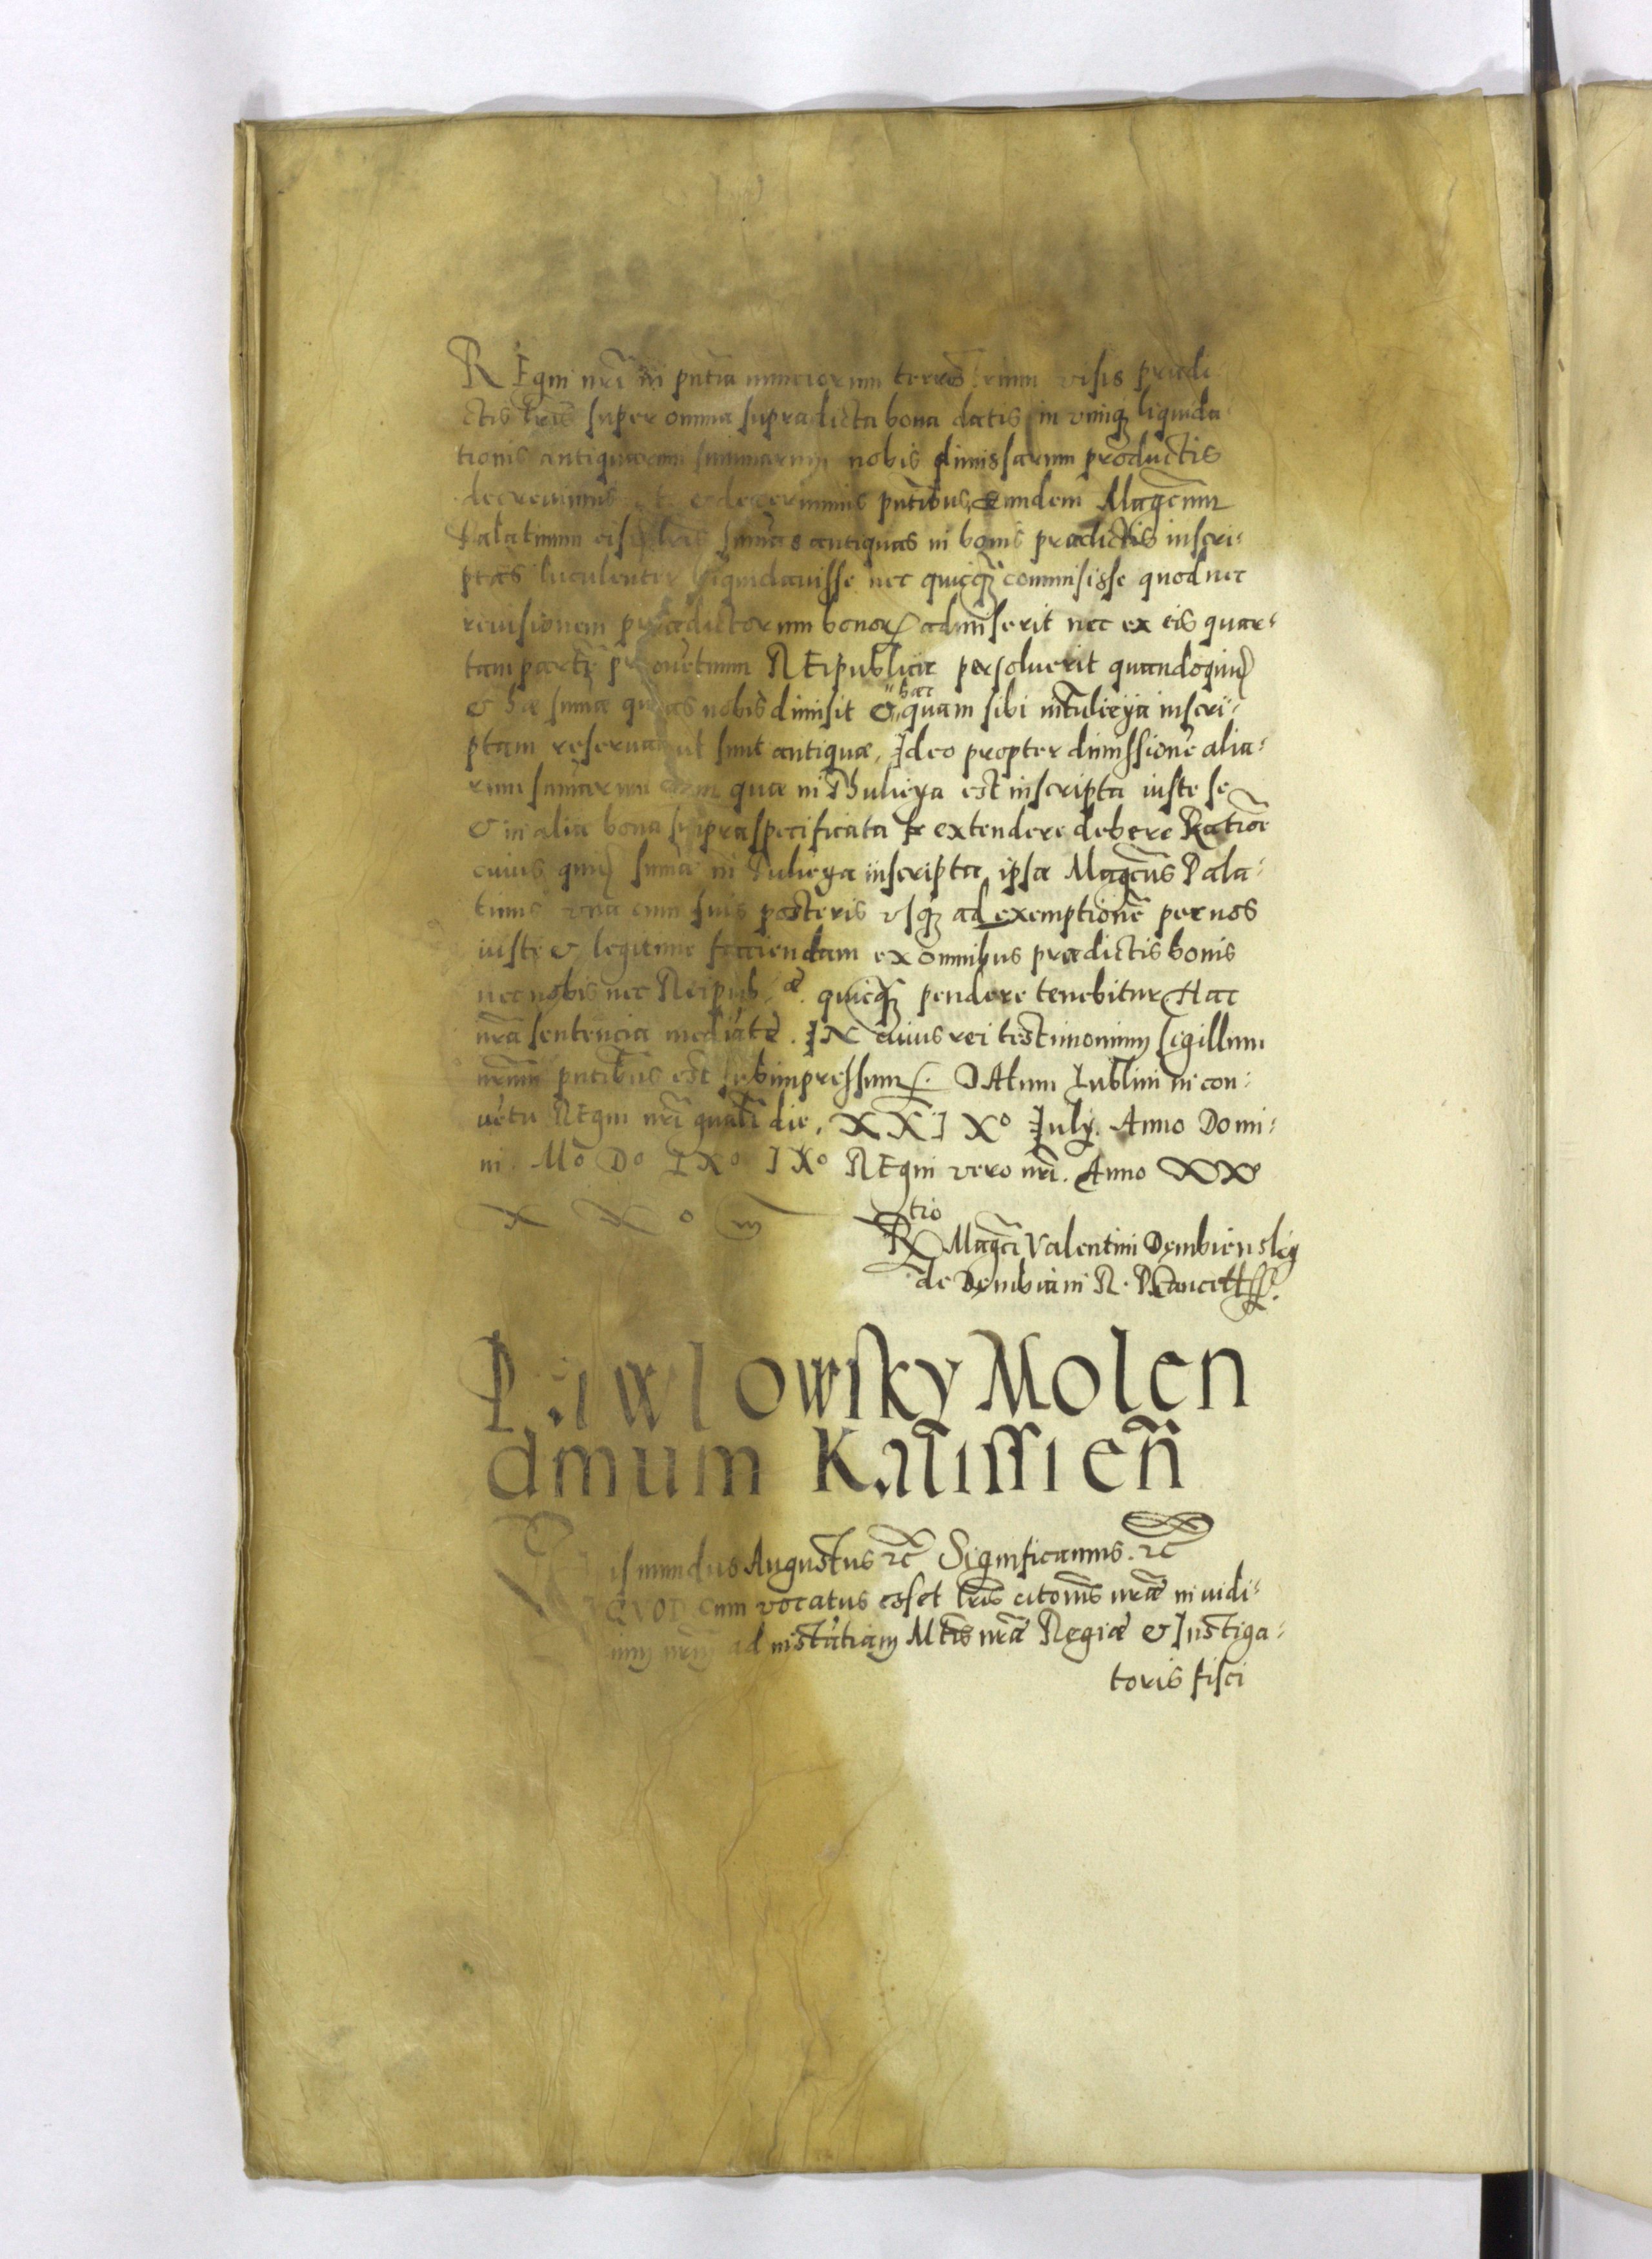 REgni nrĩ in pñtia nunciorum terrestrium visis prædi
ctis lrĩs super omnia supradicta bona datis in vimq; liquida
tionis antiquarum summarum nobis dimissarum productis
decreuimus et decernimus pñtibus, Eundem Magcum
Palatinum eisq; lrĩs sum̃as antiquas in bonis prædictis inscri-
ptas luculenter liquidauisse nec quicq̃ commisisse quod nec
reuisionem prædictorum bonor. admiserit nec ex eis quar-
tam partẽ prouẽtuum REipublicæ persoluerit quandoquid
& hæ sum̃æ quas nobis dimisit & hac quam sibi in Tulieÿa inscri-
ptam reseruauit sunt antiquæ, Ideo propter dimissionẽ alia-
rum sum̃arum quæ in Thulieÿa est inscripta iuste se
& in alia bona supra specificata se extendere debere Ratiõe
cuius quid sum̃æ in Tulieÿa inscripta, ipse Magcus Pala-
tinus vna cum suis posteris vsq; ad exemptionẽ per nos
iuste & legitime faciendam ex omnibus prædictis bonis
nec nobis nec Reipub. æ quicq̃ pendere tenebitur Hac
nrã sentencia mediãte. IN cuius rei testimonium sigillum
nrũm pñtibus est subimpressum. DAtum Lublini in con-
uẽtu REgni nrĩ gnãli die, XXIXº July. Anno Domi-
ni. Mº Dº LXº IXº REgni vero nrĩ. Anno XXXº
Rtio Magci Valentini Dembienskÿ
de Dembiani R. P. Cancell.
Pawlowsky Molen
dinum Kalissieñ
Sigismundus Augustus rc Significamus. rc
QVOD cum vocatus esset lrĩs citoniis nrĩs in iudi-
ium nrũm ad instãtiam Mtis nrã Regiæ & Instiga-
toris fisci